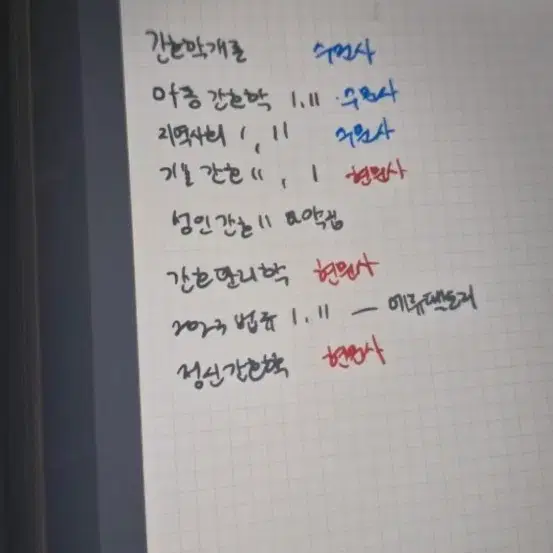 간호학개론 수문사
아동 간호학 I, II 수문사
지역사회 I, II 수문사
기본 간호 II, I 현문사
성인간호 II 요약집
간호관리학 현문사
2023 법규 I, II — 에듀팩토리
정신간호학 현문사